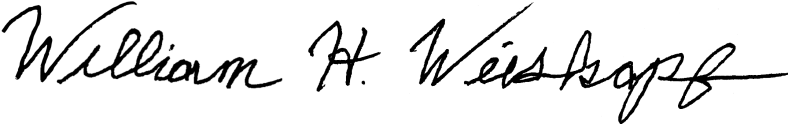 William H. Weiskopf